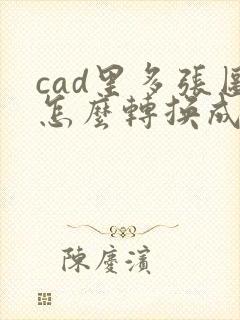 cad里多張
怎麼轉換成
陳慶濱